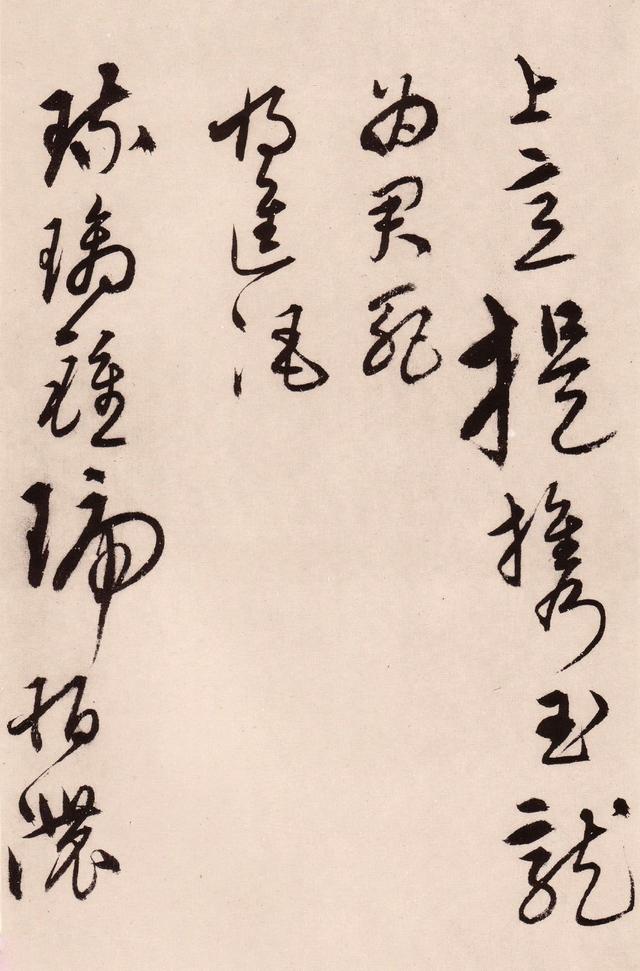 上意提携玉龍
為君死
將進酒
琉璃鍾琥珀濃